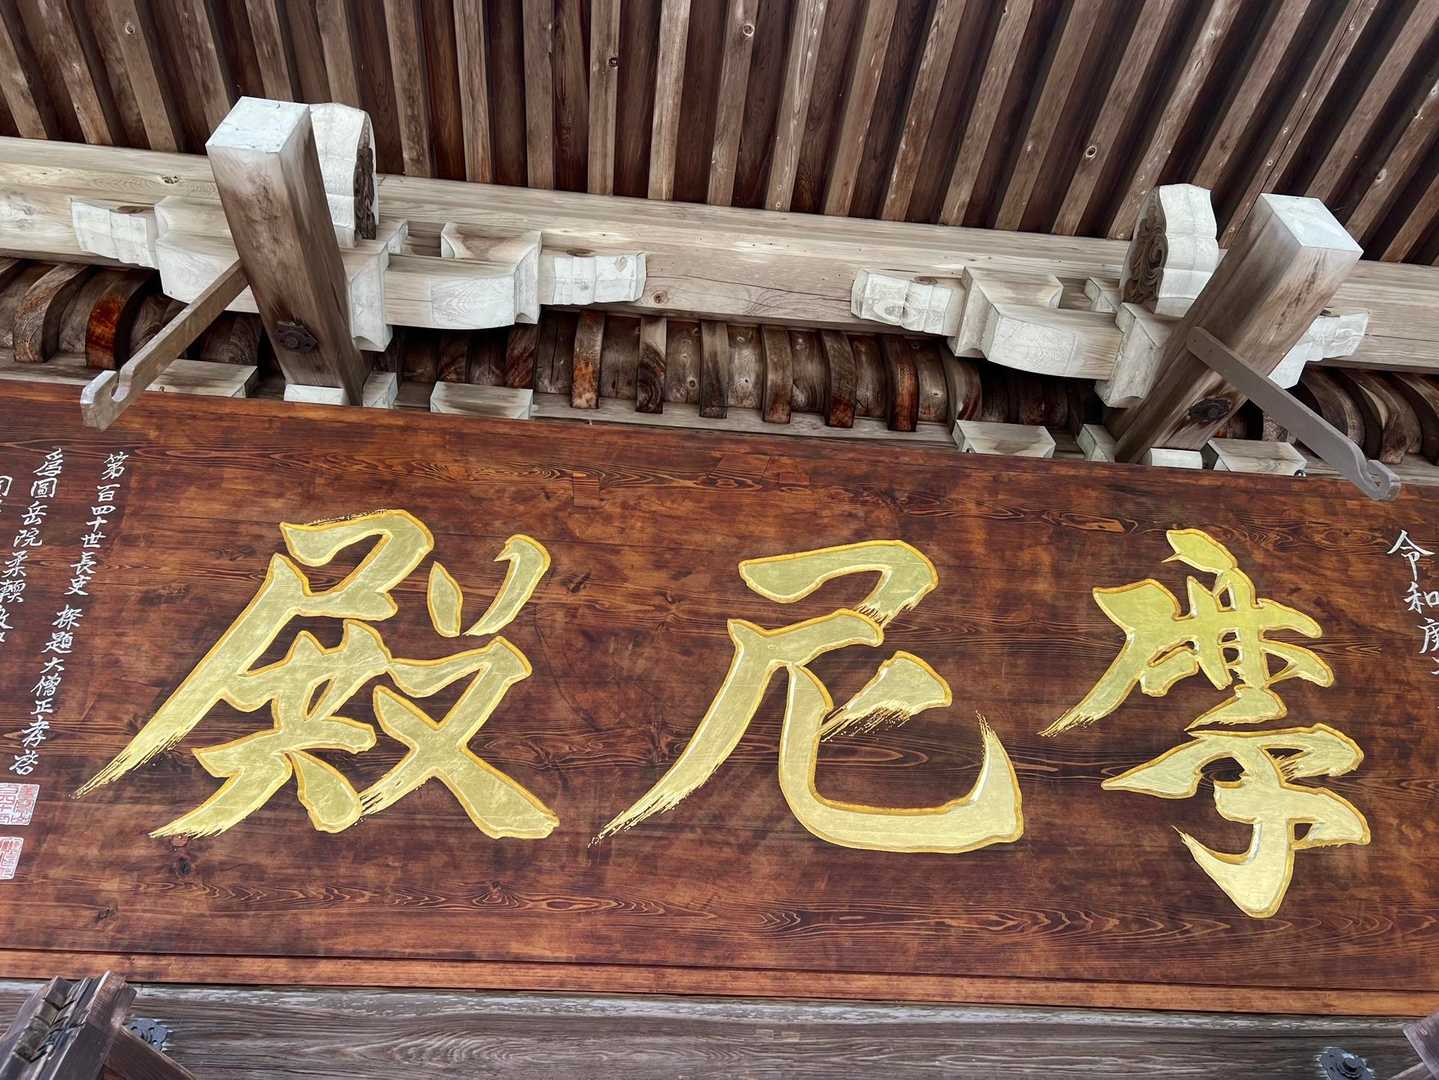 令和庚
摩尼殿
第百四十世長吏 探題大僧正孝啓
為圓岳院柔軟